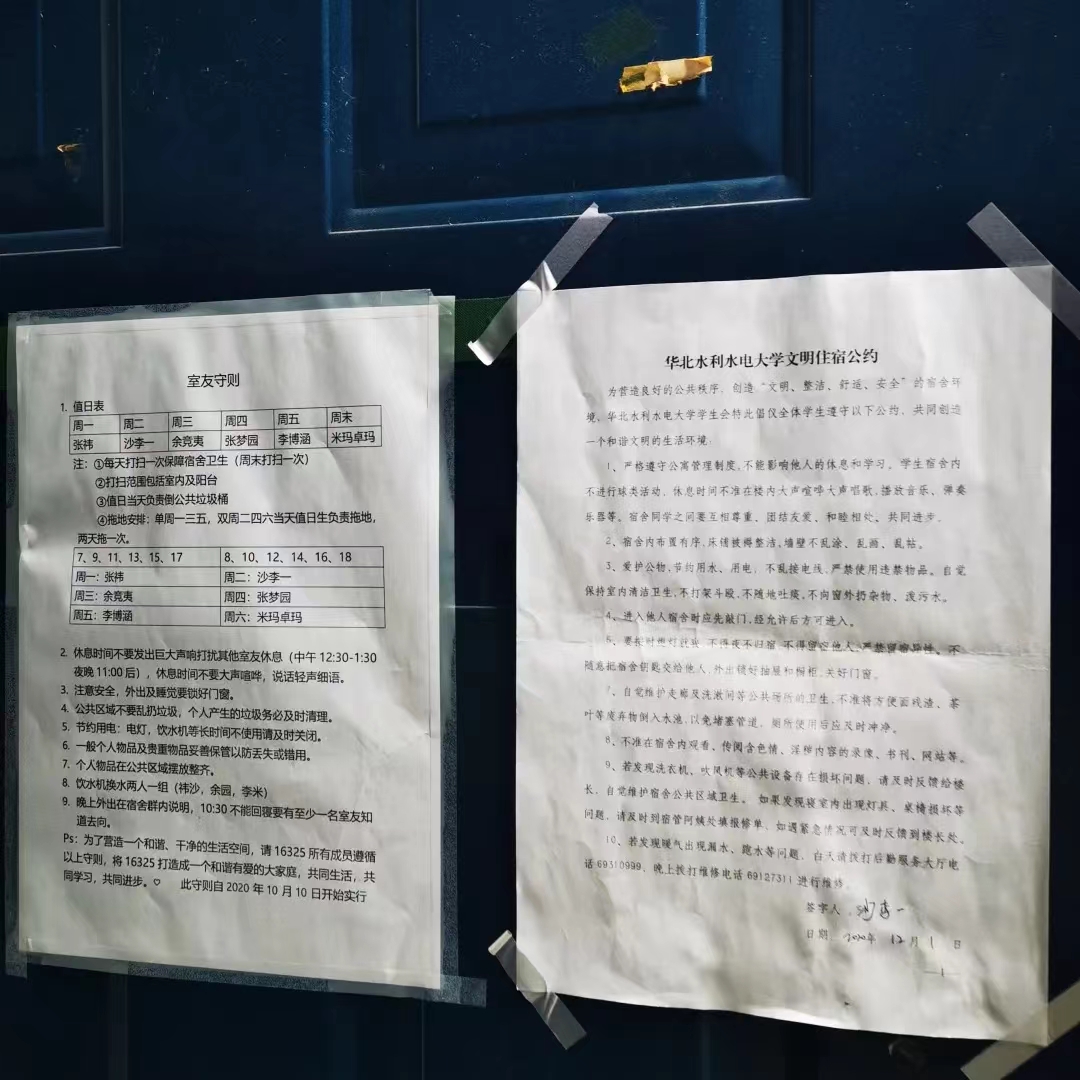 室友守则
1. 值日表
周一 周二 周三 周四 周五 周末
张祎 沙李一 余竞夷 张梦园 李博涵 米玛卓玛
注：①每天打扫一次保障宿舍卫生（周末打扫一次）
②打扫范围包括室内及阳台
③值日当天负责倒公共垃圾桶
④拖地安排：单周一三五，双周二四六当天值日生负责拖地，
两天拖一次。
7、9、11、13、15、17 8、10、12、14、16、18
周一：张祎 周二：沙李一
周三：余竞夷 周四：张梦园
周五：李博涵 周六：米玛卓玛
2. 休息时间不要发出巨大声响打扰其他室友休息（中午 12:30-1:30
夜晚 11:00 后），休息时间不要大声喧哗，说话轻声细语。
3. 注意安全，外出及睡觉要锁好门窗。
4. 公共区域不要乱扔垃圾，个人产生的垃圾务必及时清理。
5. 节约用电：电灯，饮水机等长时间不使用请及时关闭。
6. 一般个人物品及贵重物品妥善保管以防丢失或错用。
7. 个人物品在公共区域摆放整齐。
8. 饮水机换水两人一组（祎沙，余园，李米）
9. 晚上外出在宿舍群内说明，10:30 不能回寝要有至少一名室友知
道去向。
Ps：为了营造一个和谐、干净的生活空间，请 16325 所有成员遵循
以上守则，将 16325 打造成一个和谐有爱的大家庭，共同生活，共
同学习，共同进步。♡ 此守则自 2020 年 10 月 10 日开始实行
华北水利水电大学文明住宿公约
为营造良好的公共秩序，创造“文明、整洁、舒适、安全”的宿舍环
境，华北水利水电大学学生会特此倡仪全体学生遵守以下公约，共同创造
一个和谐文明的生活环境：
1、严格遵守公寓管理制度，不能影响他人的休息和学习。学生宿舍内
不进行球类活动，休息时间不准在楼内大声喧哗大声唱歌，播放音乐、弹奏
乐器等。宿舍同学之间要互相尊重、团结友爱、和睦相处。共同进步。
2、宿舍内布置有序，床铺被褥整洁，墙壁不乱涂、乱画、乱帖。
3、爱护公物，节约用水、用电，不乱接电线，严禁使用违禁物品。自觉
保持室内清洁卫生，不打架斗殴，不随地吐痰，不向窗外扔杂物、泼污水。
4、进入他人宿舍时应先敲门，经允许后方可进入。
5、要按时熄灯就寝，不得夜不归宿，不得留宿他人，严禁留宿异性。不
随意把宿舍钥匙交给他人，外出锁好抽屉和橱柜，关好门窗。
7、自觉维护走廊及洗漱间等公共场所的卫生，不准将方便面残渣、茶
叶等废弃物倒入水池，以免堵塞管道，厕所使用后应及时冲净。
8、不准在宿舍内观看、传阅含色情、淫秽内容的录像、书刊、网站等。
9、若发现洗衣机、吹风机等公共设备存在损坏问题，请及时反馈给楼
长，自觉维护宿舍公共区域卫生。如果发现寝室内出现灯具、桌椅损坏等
问题，请及时到宿管阿姨处填报修单，如遇紧急情况可及时反馈到楼长处。
10、若发现暖气出现漏水、跑水等问题，白天请拨打后勤服务大厅电
话 69310999，晚上拨打维修电话 69127311 进行维修。
签字人：沙李一
日期：2020年 12 月 1 日